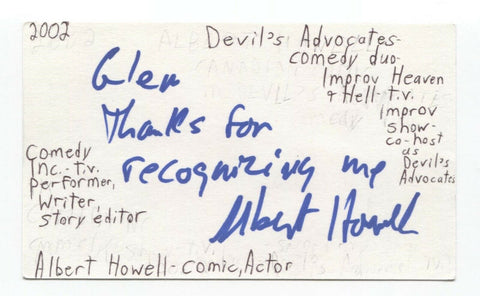 2002
Devil's Advocates-
comedy duo
Improv Heaven
& Hell-t.v.
Improv
show-
co-host
as
Devil's
Advocates
Glen
Thanks for
recognizing me
Albert Howell
Comedy
Inc.-t.v.
performer,
writer,
story editor
Albert Howell-comic, Actor